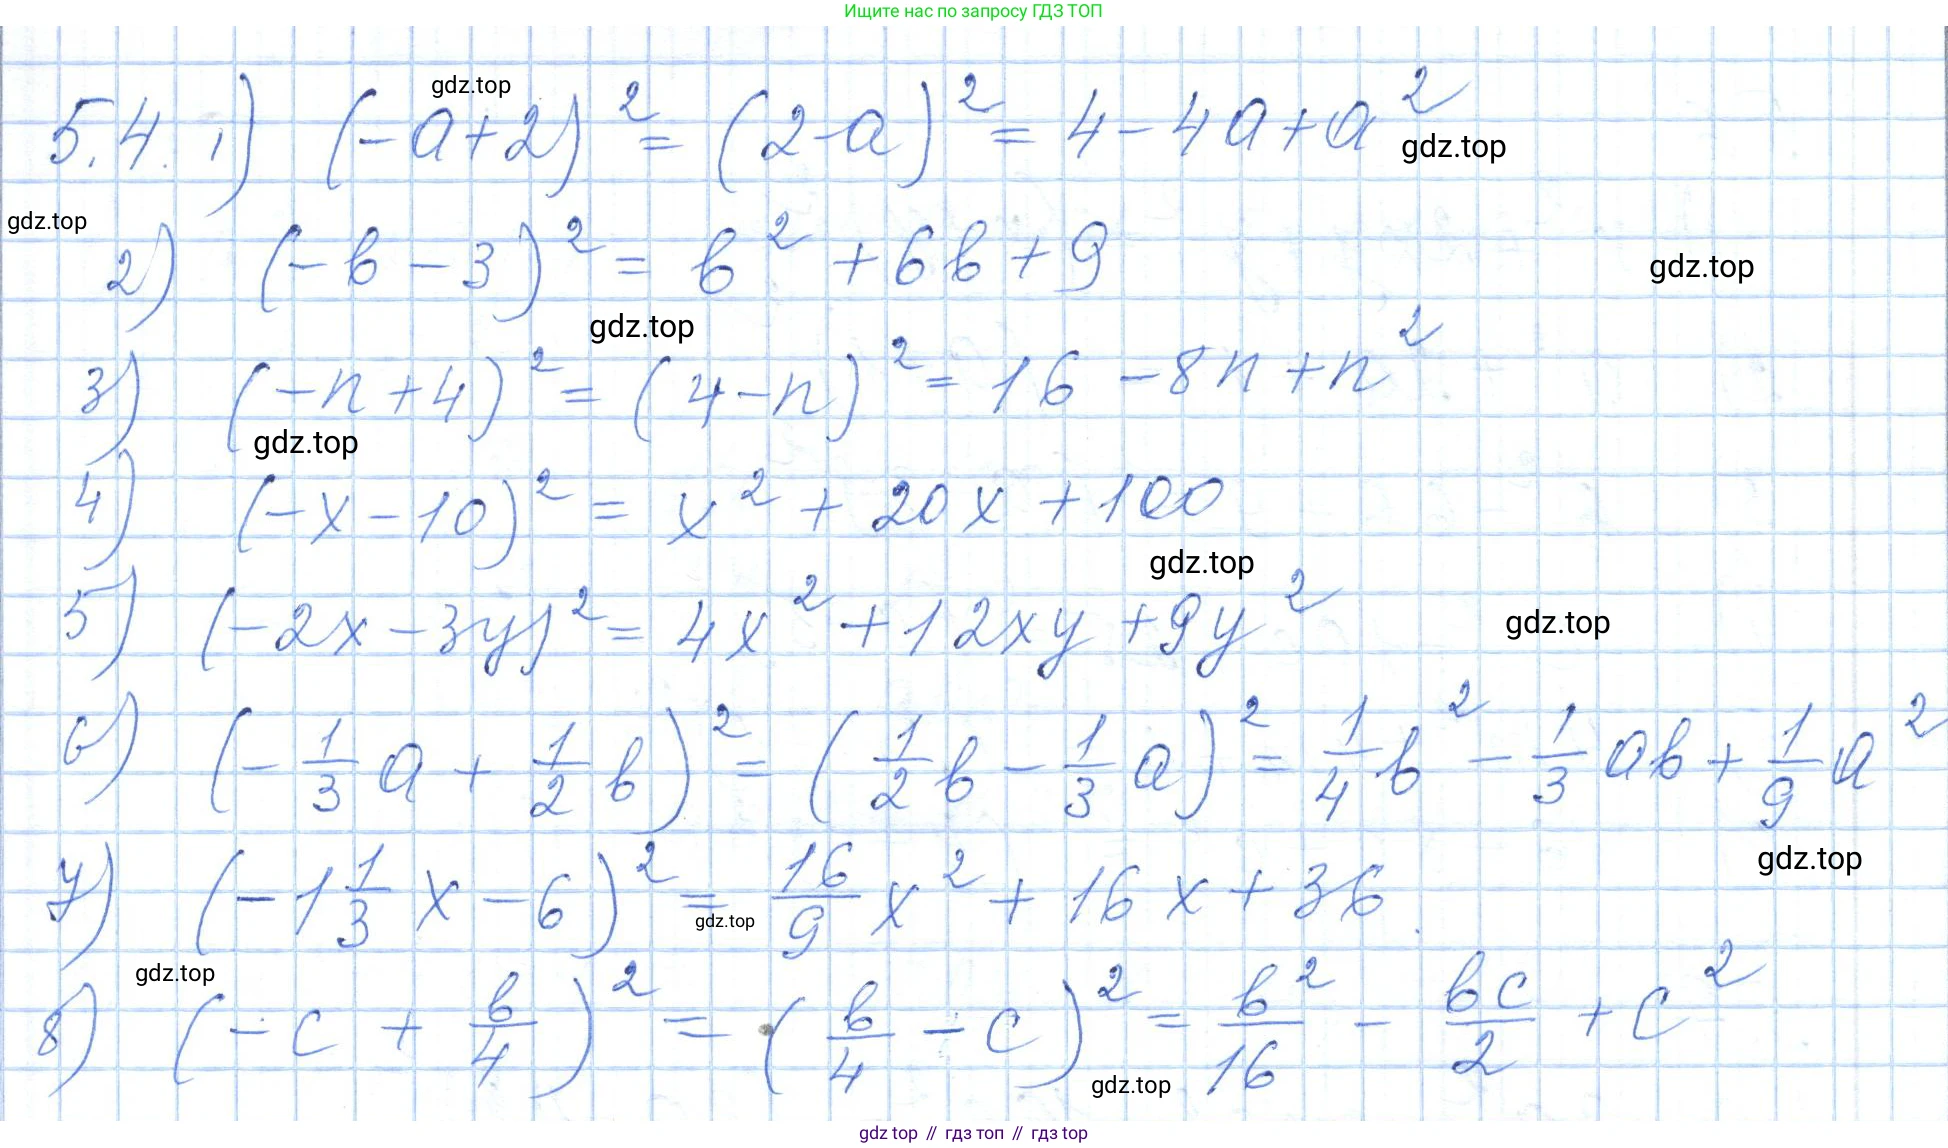 Ищите нас по запросу ГДЗ ТОП
gdz.top
5.4. 1) (-a+2)² = (2-a)² = 4-4a+a²
gdz.top
gdz.top
2) (-b-3)² = b² + 6b + 9
gdz.top
gdz.top
3) (-n+4)² = (4-n)² = 16 - 8n + n²
gdz.top
4) (-x-10)² = x² + 20x + 100
gdz.top
5) (-2x-3y)² = 4x² + 12xy + 9y²
gdz.top
6) (-1/3 a + 1/2 b)² = (1/2 b - 1/3 a)² = 1/4 b² - 1/3 ab + 1/9 a²
gdz.top
7) (-1 1/3 x - 6)² = 16/9 x² + 16x + 36
gdz.top
gdz.top
8) (-c + b/4)² = (b/4 - c)² = b²/16 - bc/2 + c²
gdz.top
gdz top // гдз топ // гдз top